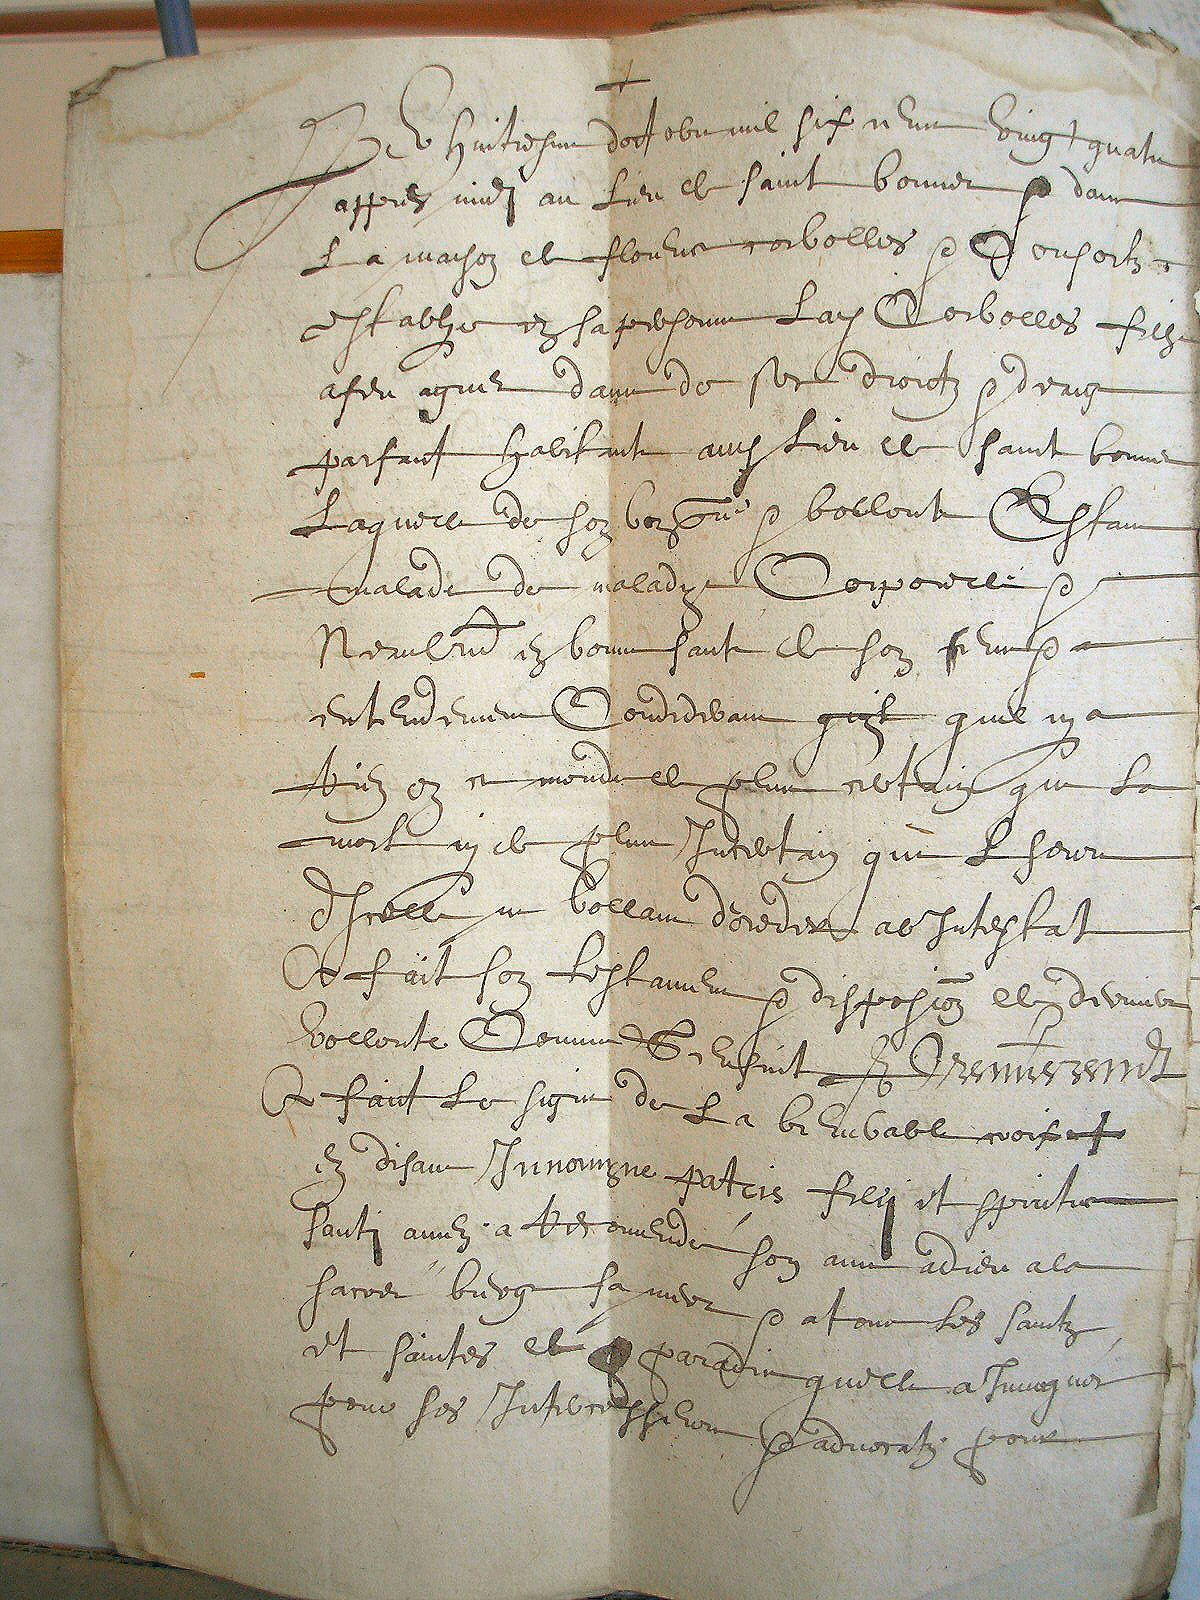 +
Le huitiesme doctobre mil six cens vingt quatre
appres midy au lieu de saint bonnet et dans
La maison de florens corbolles et Consortz
establye en sa personne Lays Corbolles fille
a feu agnet dame de ses droictz et
parsant habitante aud lieu de saint bonnet
Laquelle de son bon gre et vollonte Estant
malade de maladye Corporelle et
Neaulmd en bonne sante de son sens et
entendement Considerant quil ny a
Rien en ce monde de plus certain que La
mort ny de plus Incertain que L heure
dIcelle ne vollant deceder ab Intestat
A fait son testament et disposion de derniere
vollonte Comme sensuit Et Premierement
A faict Le signe de La venerable croix +
en disant In nomyne patris filij et spiritus
santj amen a Recomende son ame a dieu a la
sacree vierge sa mere et a tous les saintz
et saintes de paradis quelle a Invoques
pour ses Intercesseurs et advocatz pour